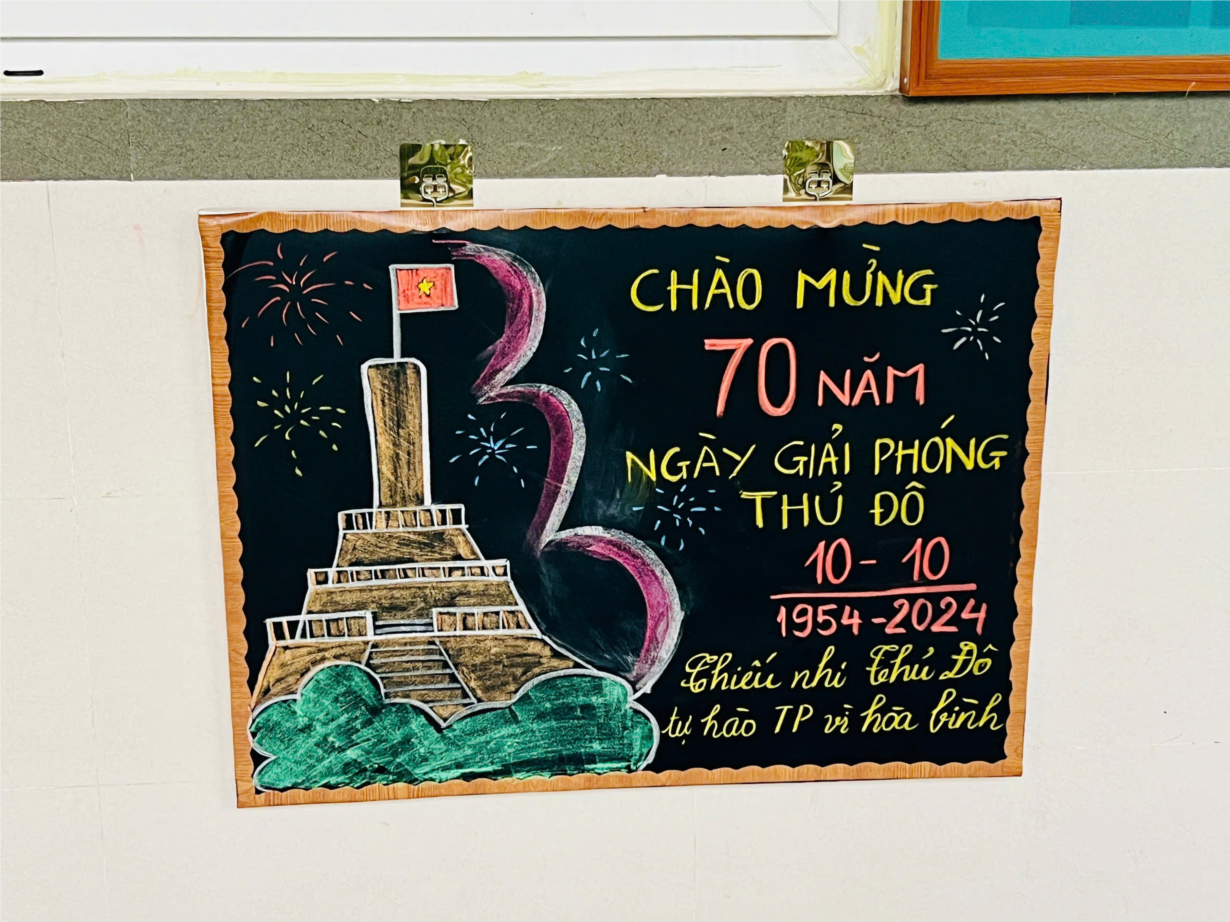 CHÀO MỪNG
70 NĂM
NGÀY GIẢI PHÓNG
THỦ ĐÔ
10 - 10
1954 - 2024
Thiếu nhi Thủ Đô
tự hào TP vì hòa bình